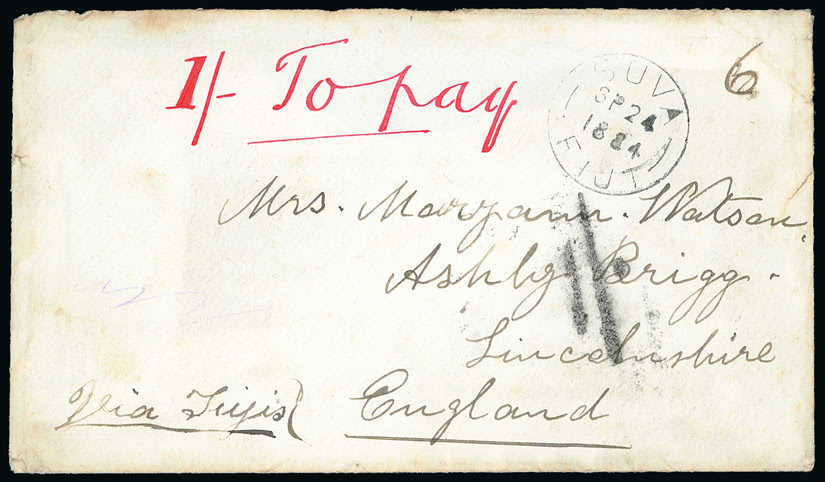 1/- To pay
6
SUVA
SP 24
1884
FIJI
Mrs. Maryann. Watson.
Ashby Brigg.
Lincolnshire
England
Via Fijis